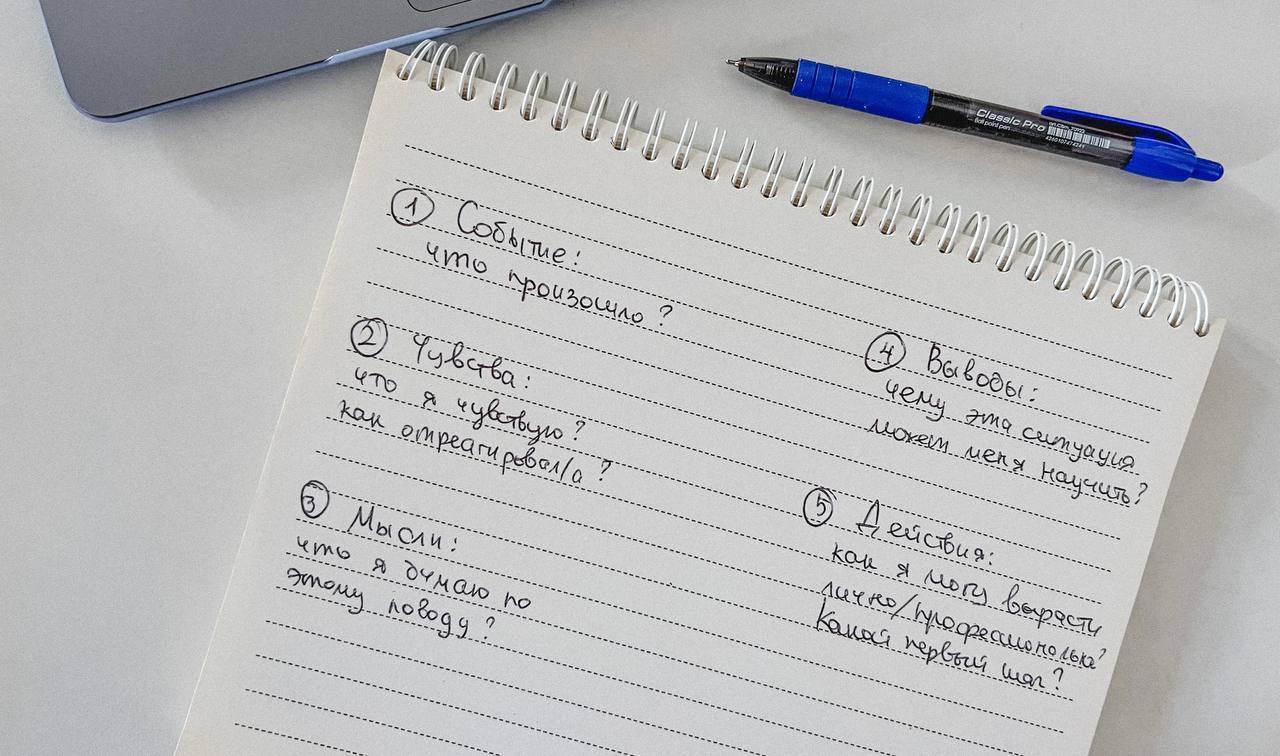 Classic Pro
Ball point pen
① Событие:
что произошло?
② Чувства:
что я чувствую?
как отреагировал/а?
③ Мысли:
что я думаю по
этому поводу?
④ Выводы:
чему эта ситуация
может меня научить?
⑤ Действия:
как я могу вырасти
лично/профессионально?
Какой первый шаг?